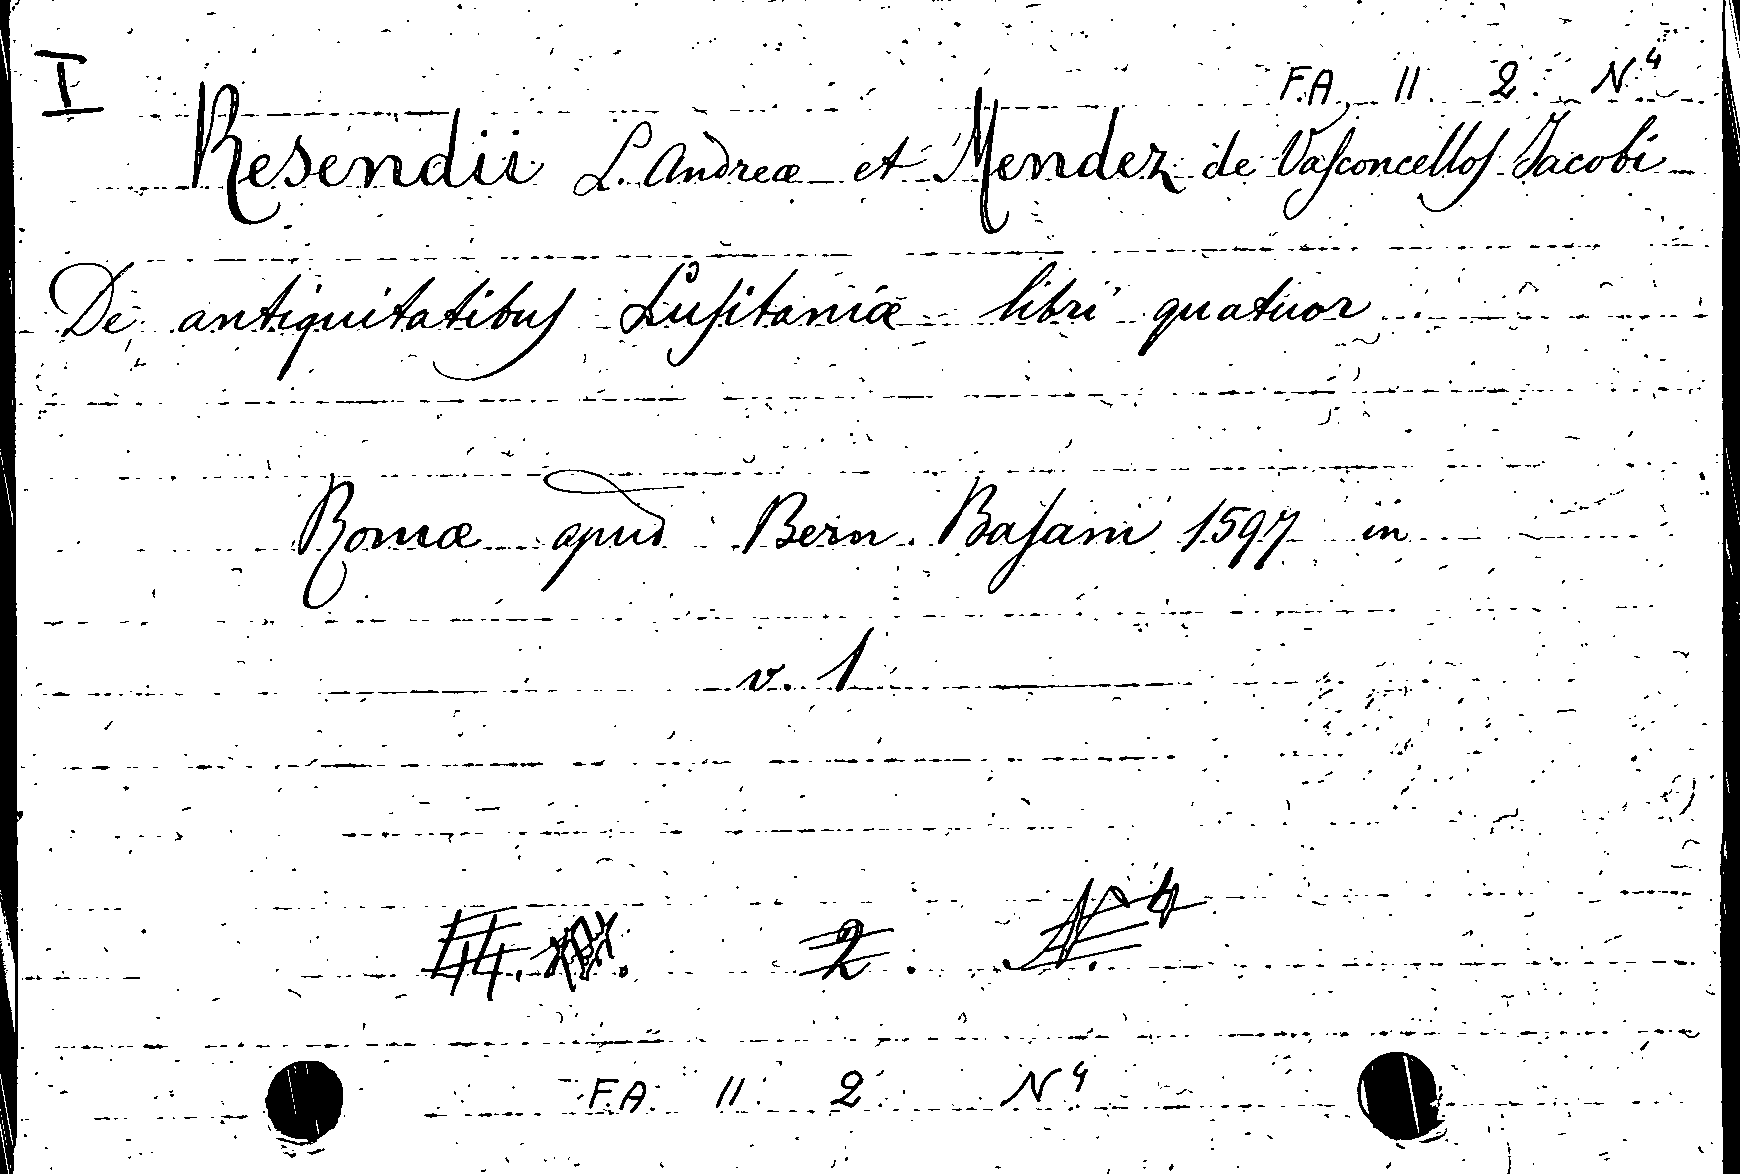 I
F.A. 11. 2. N.4
Resendii L. Andreæ et Mendez de Vasconcellos Jacobi
De antiquitatibus Lusitaniæ libri quatuor
Romæ apud Bern. Basani 1597 in
v. 1
44. 2. N.4
F.A. 11. 2. N4